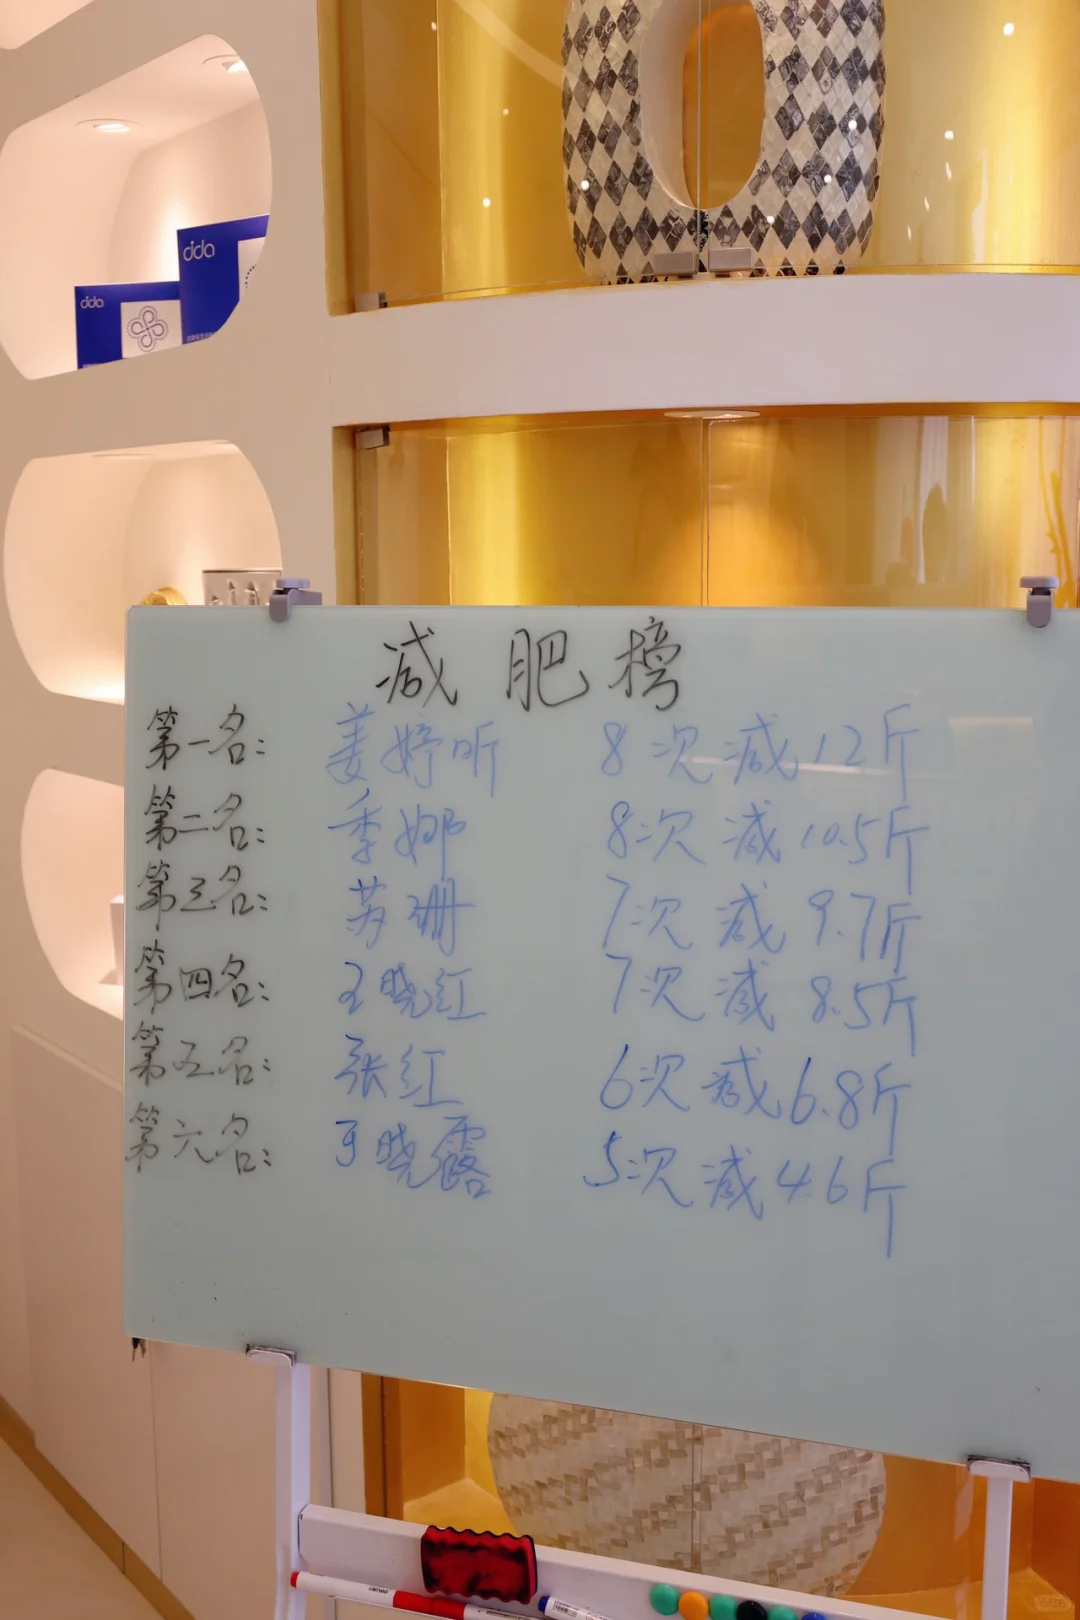 dida
dida
减肥榜
第一名: 姜婷昕 8次减12斤
第二名: 季娜 8次减10.5斤
第三名: 苏珊 7次减9.7斤
第四名: 王晓红 7次减8.5斤
第五名: 张红 6次减6.8斤
第六名: 于晓露 5次减4.6斤